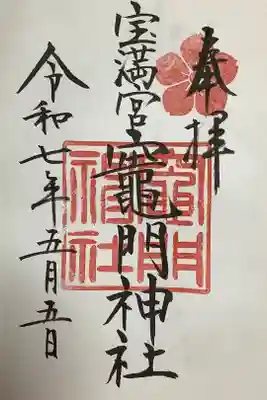 奉拝
宝満宮竈門神社
令和七年五月五日
竈門神社